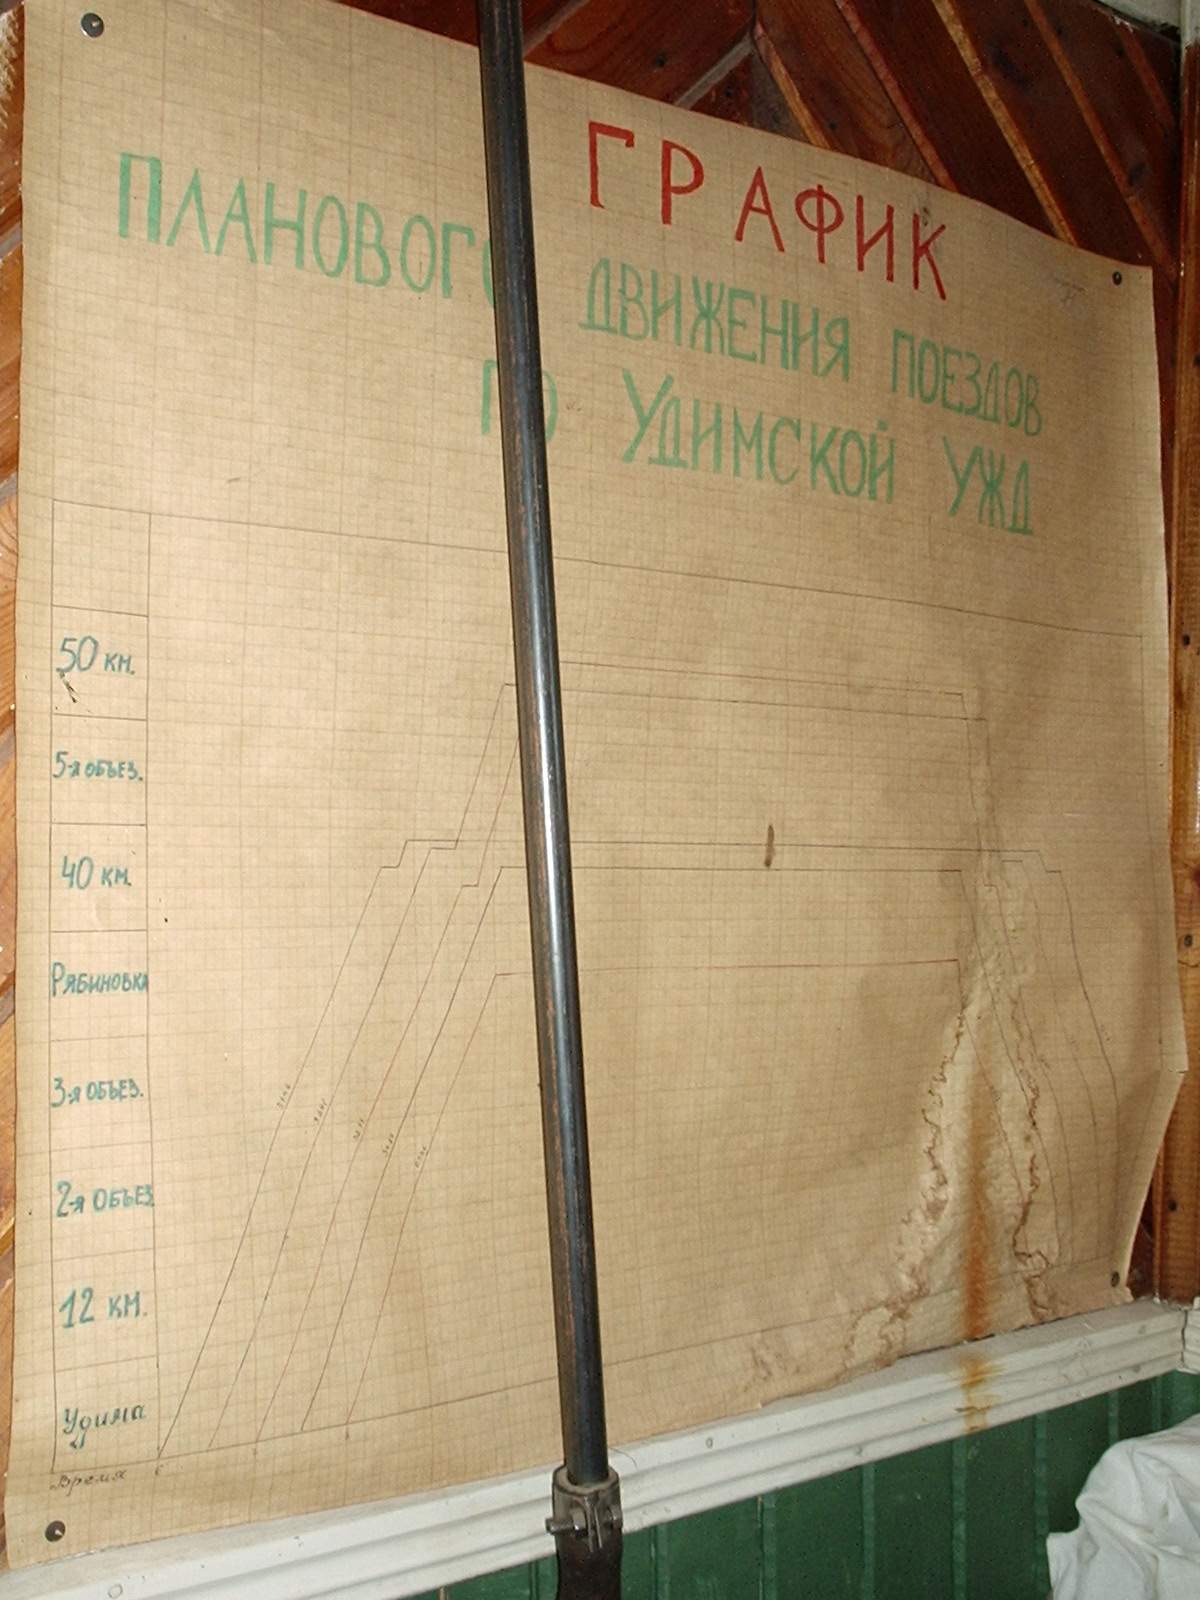 ГРАФИК
ПЛАНОВОГО ДВИЖЕНИЯ ПОЕЗДОВ
ПО УДИМСКОЙ УЖД
50 км.
5-я ОБЪЕЗ.
40 км.
РЯБИНОВКА
3-я ОБЪЕЗ.
2-я ОБЪЕЗ
12 км.
Удима
Время 6